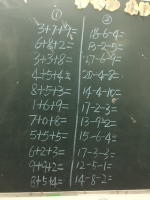 ① ②
3+7+9= 18-6-4=
6+8+2= 13-2-5=
3+3+8= 17-6-9=
4+5+4= 20-4-8=
8+5+3= 14-4-10=
1+6+9= 17-2-3=
7+0+8= 13-9-2=
5+5+5= 15-6-4=
6+2+3= 17-2-3=
9+9+2= 12-5-1=
8+5+4= 14-8-2=